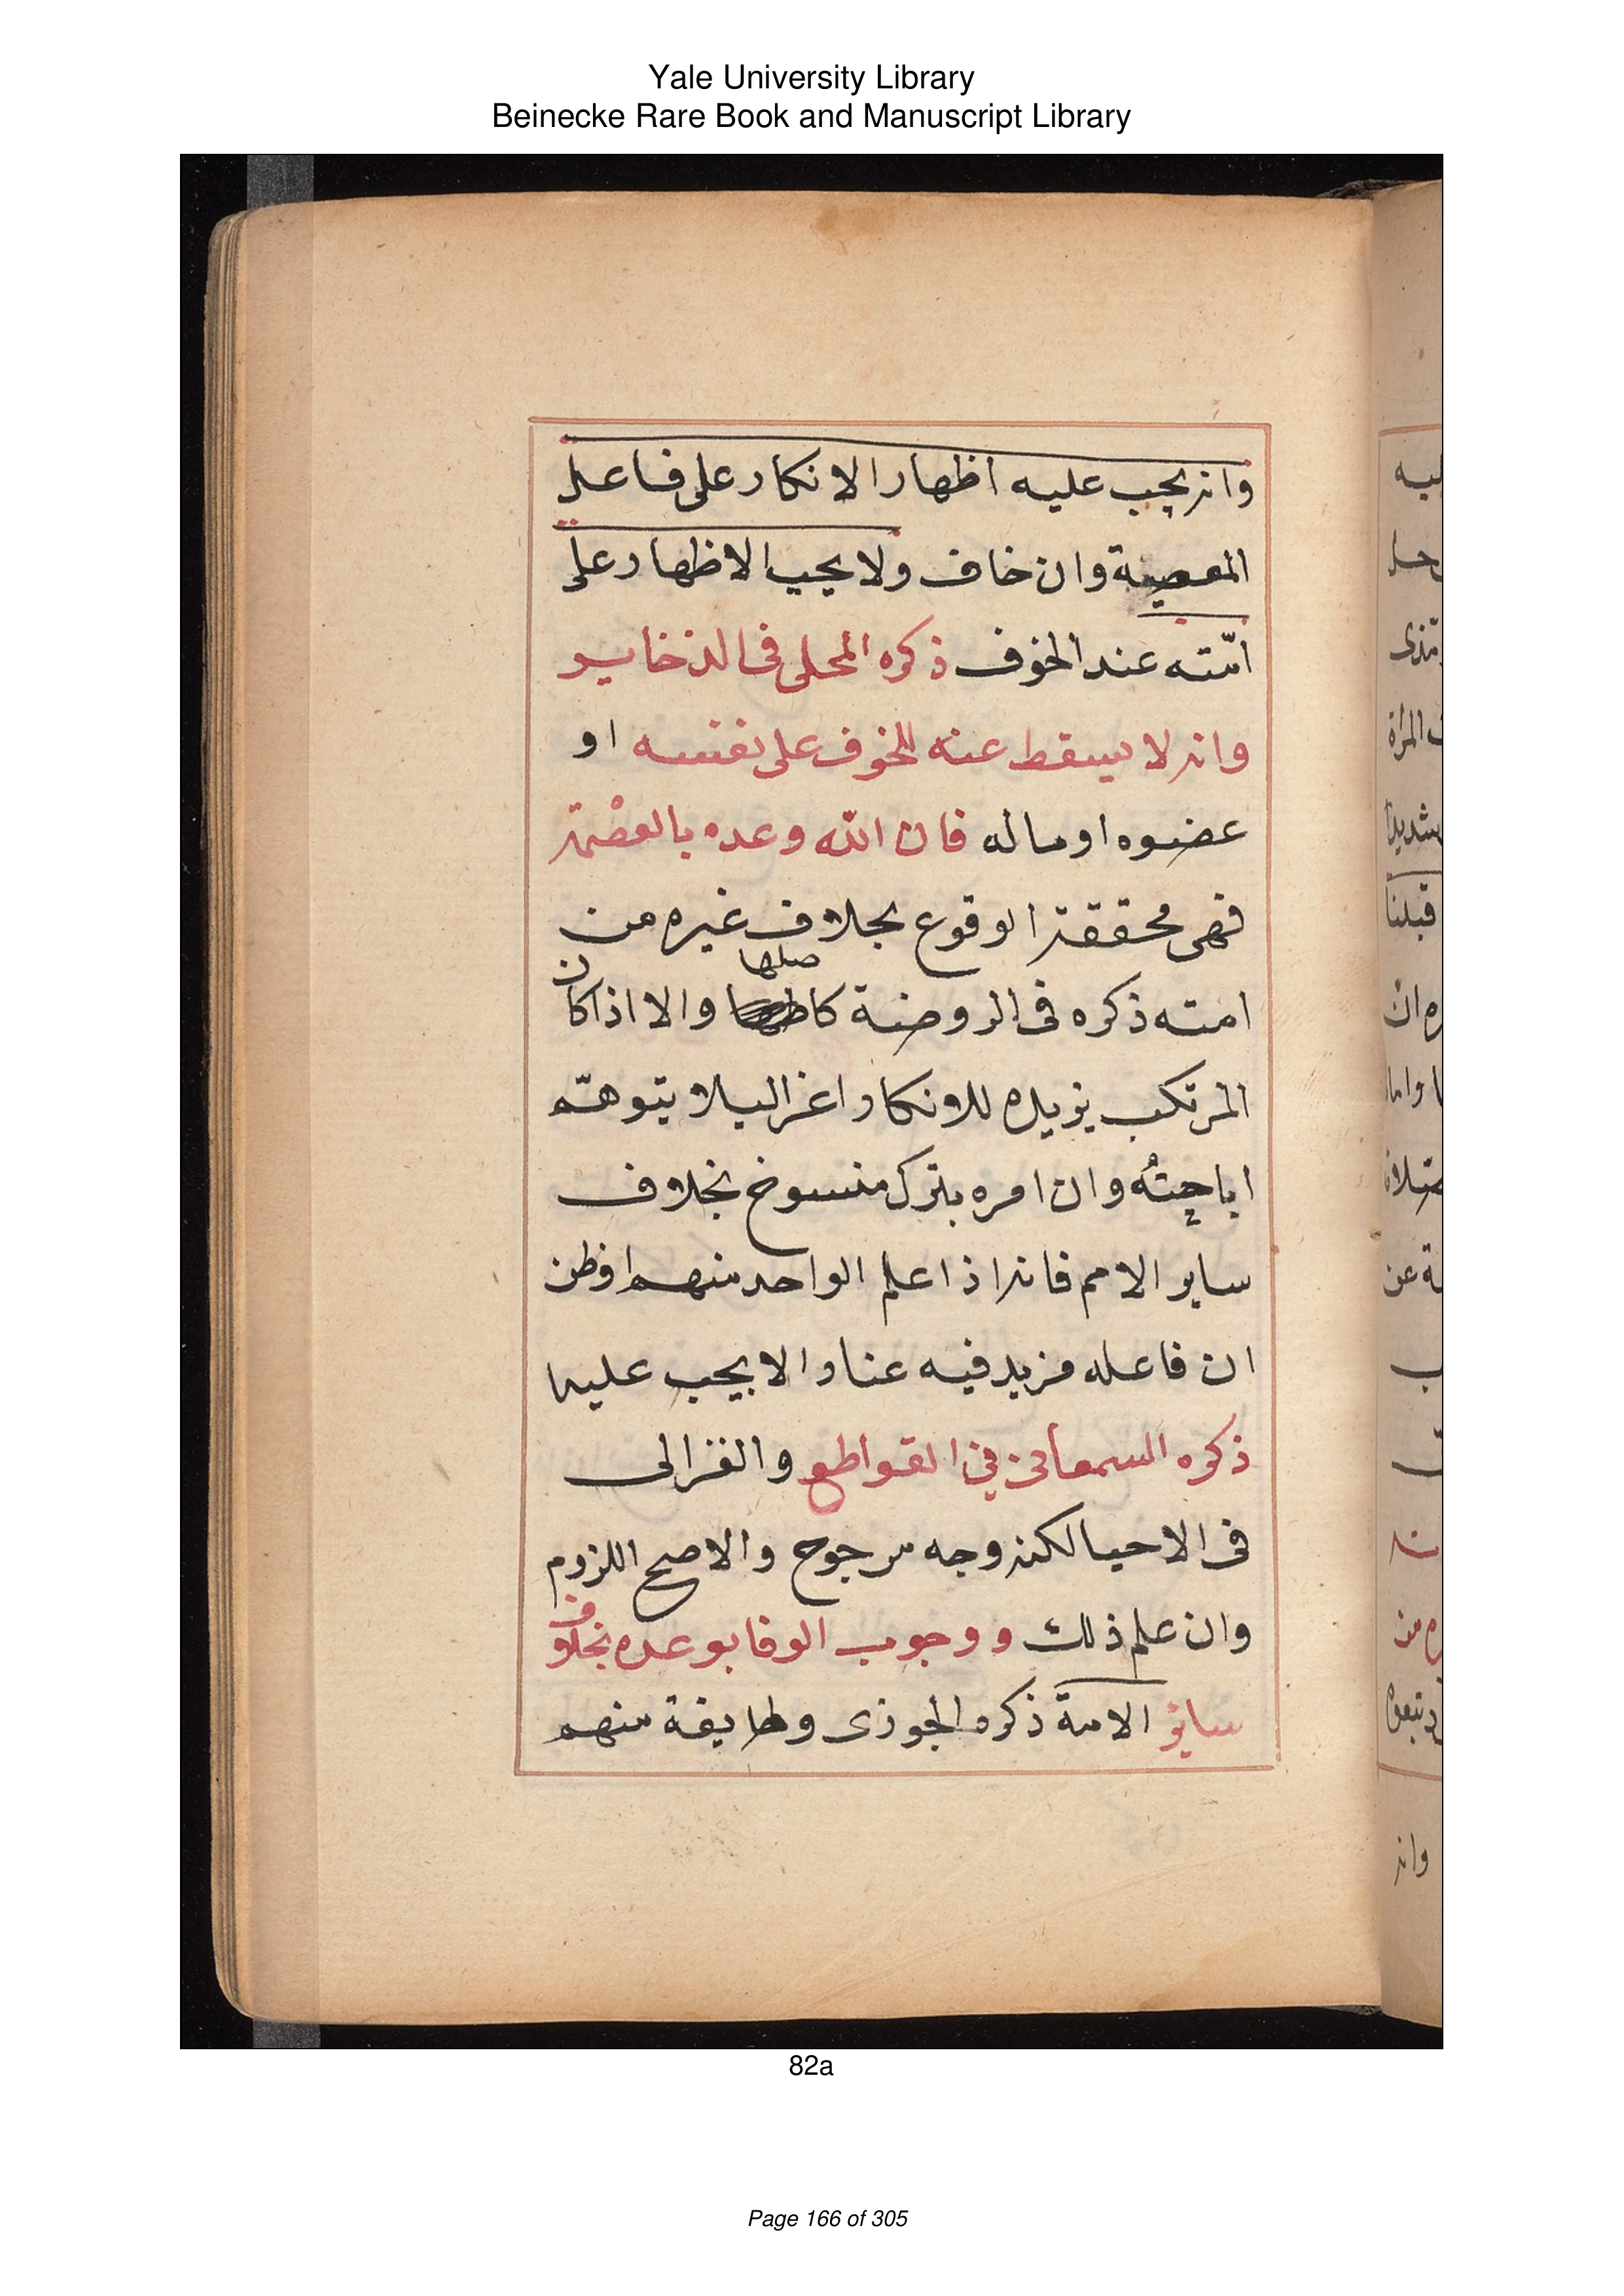 Yale University Library
Beinecke Rare Book and Manuscript Library
وانه يجب عليه اظهار الانكار على فاعل
المعصية وان خاف ولا يجب الاظهار على
امّته عند الخوف ذكره المحلى فى الذخاير
وانه لا يسقط عنه للخوف على نفسه او
عضوه او ماله فان الله وعده بالعصْمة
فهى محققة الوقوع بخلاف غيره من
امته ذكره فى الروضة كاصلها والا اذا كان
المرتكب يزيده للانكار اغرا ليلا يتوهّم
اباحتُه وان امره بترك منسوخ بخلاف
ساير الامم فانه اذا علم الواحد منهم اوظن
ان فاعله مزيد فيه عنادا لا يجب عليه
ذكره السمعانى في القواطع والغزالى
فى الاحيا لكنه وجه مرجوح والاصح اللزوم
وان علم ذلك ووجوب الوفا بوعده بخلاف
ساير الامة ذكره الجوزى وطايفة منهم
ليه
المراة
شديدا
قبلنا
ة عن
وانه
82a
Page 166 of 305